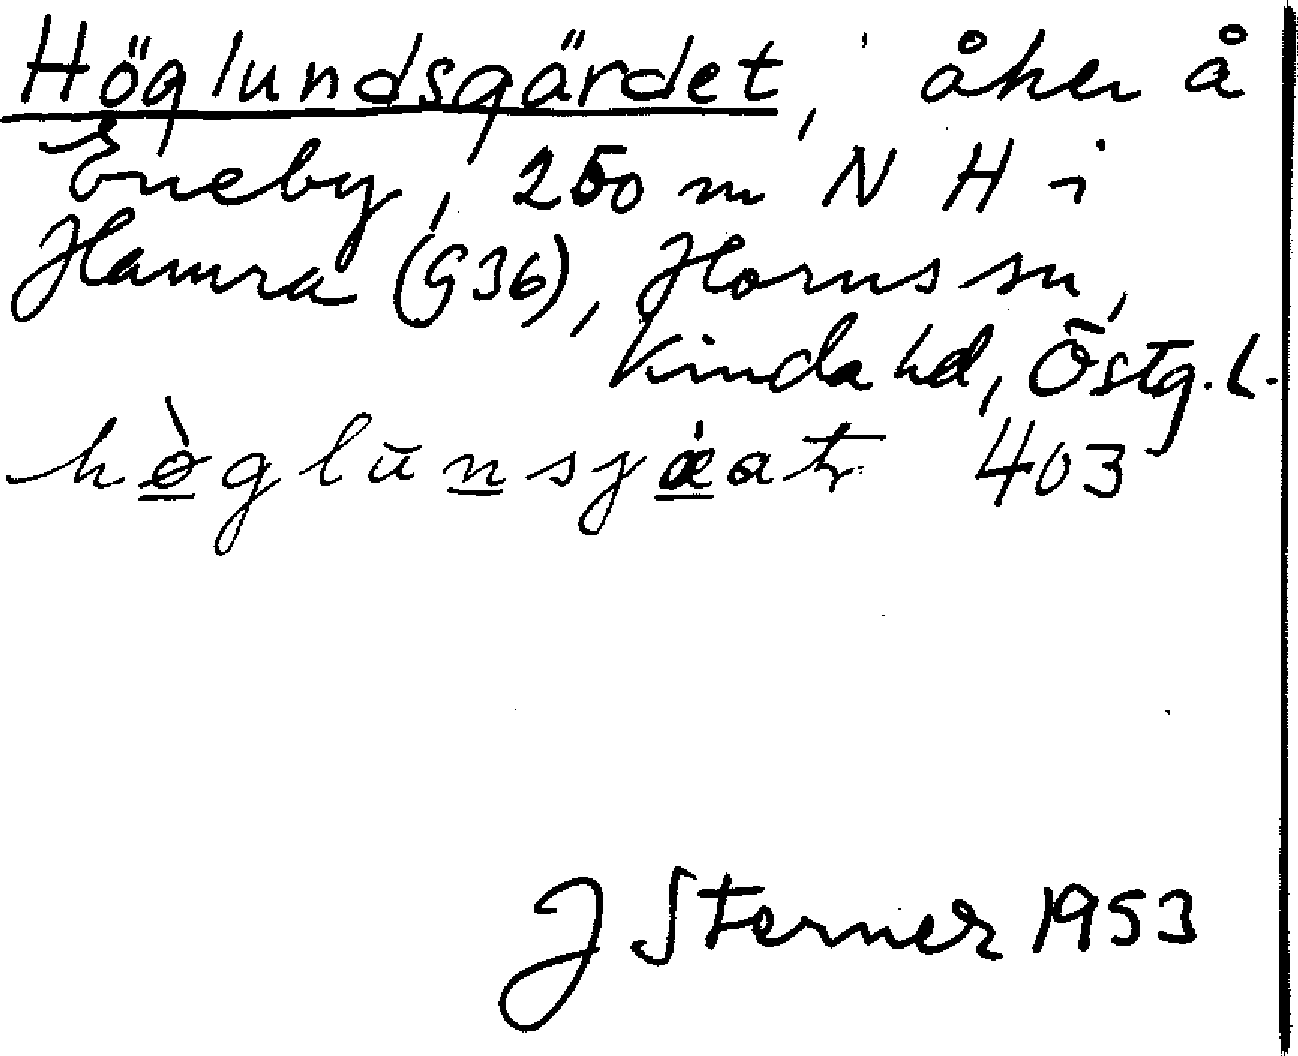 Höglundsgärdet, åker å
Eneby, 250 m N H i
Hamra (G36), Horns sn,
Kinda hd, Östg.l.
hø̀glūnsjǽat 403
J Sterner 1953